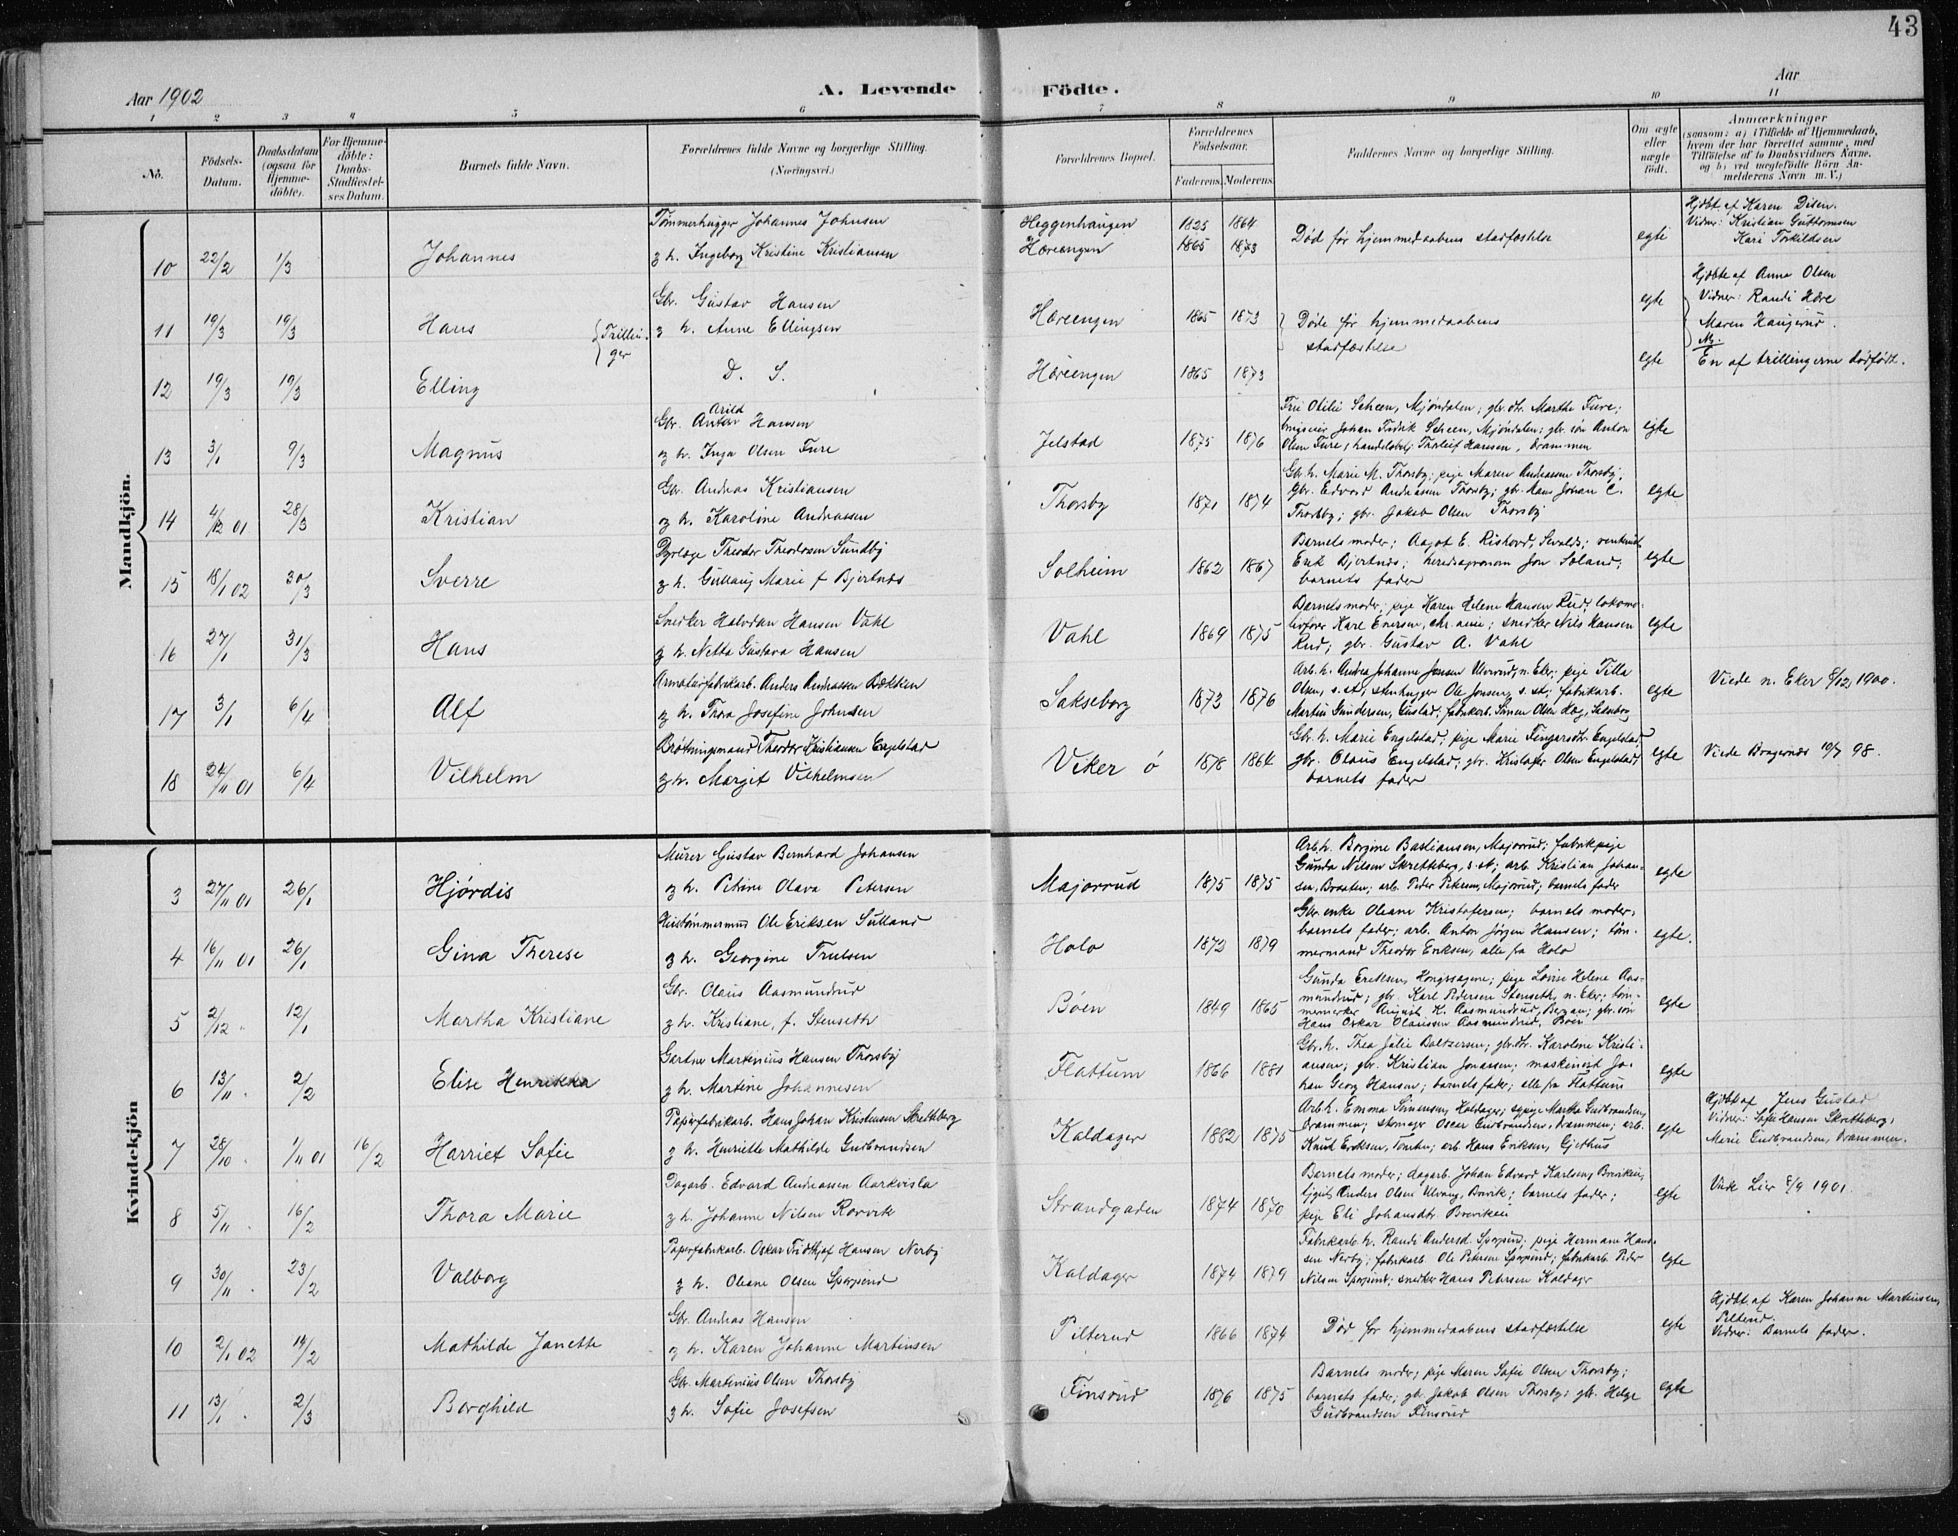 43
Aar 1902
A. Levende Födte.
Aar
1 2 3 4 5 6 7 8 9 10 11
No.
Födsels-Datum.
Daabsdatum (ogsaa for Hjemme-döbte).
For Hjemme-döbte: Daabs-Stadfæstelses Datum.
Barnets fulde Navn.
Forældrenes fulde Navne og borgerlige Stilling.
(Næringsvei.)
Forældrenes Bopæl.
Forældrenes Födselsaar.
Faderens. Moderens.
Faddernes Navne og borgerlige Stilling.
Om ægte eller uægte födt.
Anmærkninger
(saasom: a) i Tilfælde af Hjemmedaab,
hvem der har forrettet samme, med
Tilföielse af to Daabsvidners Navne,
og b) ved uægtefödte Börn An-
melderens Navn m. V.)
Mandkjön.
10 22/2 1/3 Johannes
Tømmerhugger Johannes Johnsen
g h. Ingeborg Kristine Kristiansen
Heggenhaugen 1825 1864
Hæreengen 1865 1873
Død før hjemmedaabens stadfæstelse
egte
Hjdbt. af Karen Disen.
Vidner: Kristian Guttormsen
Kari Torkildsen
11 19/3 19/3 Hans
Trillin-
ger
Gbr. Gustav Hansen
g h. Anne Ellingsen
Hæreengen 1865 1873
Døde før hjemmedaabens
stadfæstelse
egte
Hjdbte af Anna Olsen
Vidner: Randi Høre
Maren Haugerud.
Nb.
12 19/3 19/3 Elling
D. S.
Hæreengen 1865 1873
egte
En af trillingerne dødfødt.
13 3/1 9/3 Magnus
Arild
Gbr. Anton Hansen
og h. Inga Olsen Fure
Jelstad 1875 1876
Fru Otilie Scheen, Mjøndalen; gbr. dtr. Marthe Fure;
Johan Fredrik Scheen, Mjøndalen; gbr. søn Anton
Olsen Fure, handelsbetj. Thorleif Hansen, Drammen
egte
14 4/12 01 28/3 Kristian
Gbr. Andreas Kristiansen
og h. Karoline Andreassen
Thorsby 1871 1874
Gbr. h. Marie M. Thorsby; pige Maren Andreassen Thorsby;
Gbr. Edvard Andreassen Thorsby; gbr. Hans Johan C.
Thorsby; gbr. Jakob Olsen Thorsby
egte
15 18/1 02 30/3 Sverre
Dyrlæge Theodor Theodorsen Sundby
g h. Gullaug Marie f Bjertnæs
Solheim 1862 1867
Barnets moder; Aagot E. Ristvord, Sevalds;
Erik Bjertnæs; heredsagronom Jon Søland;
barnets fader
egte
16 27/1 31/3 Hans
Snedker Halvdan Hansen Vahl
g h. Netta Gustava Hansen
Vahl 1869 1875
Barnets moder; pige Karen Helene Hansen Rud; lokomo-
tivfører Karl Enersen, Chr. ania; snedker Nils Hansen
Rud; gbr. Gustav A. Vahl
egte
17 3/1 6/4 Alf
Armaturfabrikarb. Anders Andreassen Bækken
og h. Thora Josefine Johnsen
Sakseborg 1873 1876
Arb. h. Andrea Johanne Jensen Ulverud, n. Eker; pige Tilla
Olsen, s. st; stenhugger Ole Jensen, s. st; fabrikarb.
Martin Gundersen, Gustad; fabrikarb. Simen Olsen Hæg, Sakseborg
egte
Viede n. Eker 8/12 1900.
18 24/11 01 6/4 Vilhelm
Brøtningsmand Theodor Kristiansen Engelstad
g h. Margit Vilhelmsen
Viker ø 1878 1864
Gbr. h. Marie Engelstad; pige Marie Fingarsdtr. Engelstad,
gbr. Olaus Engelstad; gbr. Kristofer Olsen Engelstad;
barnets fader
egte
Viede Bragernæs 10/7 98.
Kvindekjön
3 27/11 01 26/1 Hjørdis
Murer Gustav Bernhard Johansen
og h. Petrine Olava Petersen
Majorrud 1875 1875
Arb. h. Borgine Bastiansen, Majorrud; fabrikpige
Gunda Nilsen Skretteberg, s. st; arb. Kristian Johan-
sen, Braaten; arb. Peder Petersen, Majorrud; barnets fader
egte
4 16/11 01 26/1 Gina Therese
Hustømmermnd Ole Eriksen Sulland
g h. Georgine Trulsen
Holo 1872 1879
Gbr. enke Oleane Kristofersen; barnets moder,
barnets fader; arb. Anton Jørgen Hansen; tøm-
mermand Theodor Eriksen, alle fra Holo
egte.
5 2/12 12/1 Martha Kristiane
Gbr. Olaus Aasmundrud
g h. Kristiane, f. Stenseth
Bøen 1849 1865
Gunda Eriksen, Hongssagene; pige Lovise Helene Aas-
mundrud; gbr. Karl Pedersen Stenseth, n. Eker; tøm-
mermerker August K. Aasmundrud, Bergan; gbr. søn
Hans Oskar Olaussen Aasmundrud, Bøen
egte
6 13/11 2/2 Elise Henrikka
Gartner Martinius Hansen Thorsby
g h. Martine Johannesen
Flattum 1866 1881
Gbr. h. Thea Julie Baltzersen; gbr. dtr. Karoline Kristi-
ansen; gbr. Kristian Jonassen; maskinist Jo-
han Georg Hansen; barnets fader; alle fra Flattum
egte
7 28/10 1/11 01 16/2 Harriet Sofie
Papirfabrikarb. Hans Johan Kristensen Skretteberg
g h. Henriette Mathilde Gudbrandsen
Kaldager 1882 1875
Arb. h. Emma Simensen, Kaldager; sypige Martha Gudbrandsen,
Drammen; skomager Oscar Gudbrandsen, Drammen; arb.
Knut Eriksen, Tomten; arb. Hans Eriksen, Gjethus
egte
Hjdbt. af Jens Gustad
Vidner: Sofie Hansen Skretteberg,
Marie Gudbrandsen, Drammen.
8 5/11 16/2 Thora Marie
Dagarb. Edvard Andreassen Aarkvisla
g h. Johanne Nilsen Rørvik
Strandgaden 1874 1870
Barnets moder; dagarb. Johan Edvard Karlsen, Breviken;
Anders Olsen Ulvang, Bravik; barnets fader;
pige Eli Johansdtr. Breviken
egte
Viede Lier 8/9 1901.
9 30/11 23/2 Valborg
Papirfabrikarb. Oskar Fridthjof Hansen Nerby
g h. Oleane Olsen Spersrud
Kaldager 1874 1879
Fabrikarb. h. Randi Andersd. Spersrud; pige Hermane Han-
sen Nerby; fabrikarb. Ole Petersen Spersrud; fabrikarb. Peder
Nilsen Spersrud; snedker Hans Petersen Kaldager
egte
10 2/1 02 14/2 Mathilde Janette
Gbr. Andreas Hansen
og h. Karen Johanne Martinsen
Pilterud 1866 1874
Død før hjemmedaabens stadfæstelse
egte
Hjdbt. af Karen Johanne Martinsen,
Pilterud.
Vidner: Barnets fader.
11 13/1 2/3 Borghild
Gbr. Martinius Olsen Thorsby
g h. Sofie Josefsen
Finsrud 1876 1875
Barnets moder; pige Maren Sofie Olsen Thorsby;
barnets fader; gbr. Jakob Olsen Thorsby; gbr. Helge
Gudbrandsen Finsrud
egte